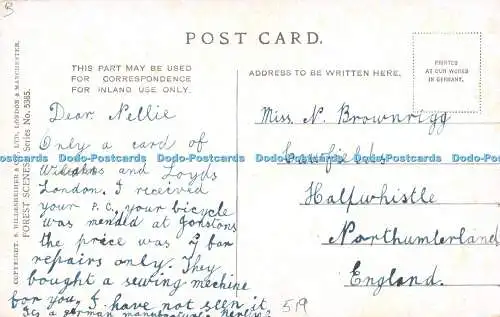 POST CARD.
THIS PART MAY BE USED
FOR CORRESPONDENCE
FOR INLAND USE ONLY.
ADDRESS TO BE WRITTEN HERE.
PRINTED
AT OUR WORKS
IN GERMANY.
COPYRIGHT. S. HILDESHEIMER & CO., LTD. LONDON & MANCHESTER.
FOREST SCENES. Series No. 5385.
Dear Nellie
Only a card of
and Loyds
London. I received
your P.C, your bicycle
was mended at Jonstons
the price was 2/ for
repairs only. They
bought a sewing mechine
for you, I have not seen it
its a german manufacture
Miss N. Brownrigg
Halfwhistle
Northumberland
England.
519
Dodo-Postcards Dodo-Postcards Dodo-Postcards Dodo-Postcards Dodo-Postcards